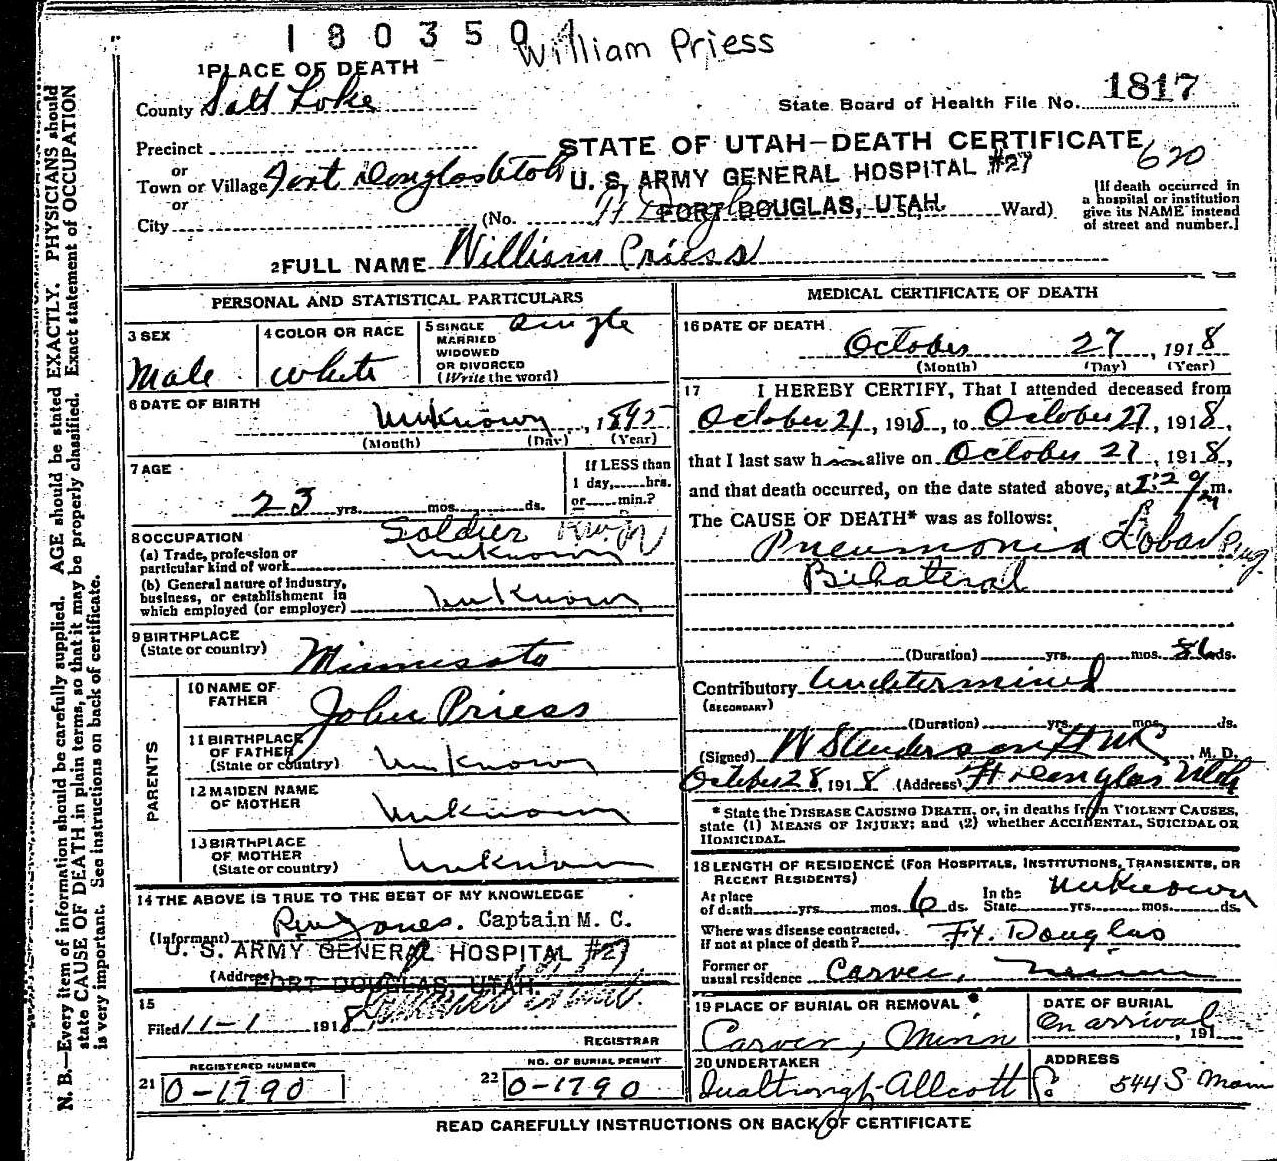 180350
William Priess
1 PLACE OF DEATH
County Salt Lake
State Board of Health File No. 1817
Precinct
STATE OF UTAH—DEATH CERTIFICATE
620
or
Town or Village Fort Douglas Utah
U. S. ARMY GENERAL HOSPITAL #27
or
City (No. Ft Douglas St. Ward)
FORT DOUGLAS, UTAH.
[If death occurred in
a hospital or institution
give its NAME instead
of street and number.]
2 FULL NAME William Priess
PERSONAL AND STATISTICAL PARTICULARS
3 SEX
Male
4 COLOR OR RACE
White
5 SINGLE
MARRIED
WIDOWED
OR DIVORCED
(Write the word)
Single
6 DATE OF BIRTH
Unknown, 1895
(Month) (Day) (Year)
7 AGE
23 yrs. mos. ds.
If LESS than
1 day, hrs.
or min.?
8 OCCUPATION Soldier
(a) Trade, profession or
particular kind of work Unknown
(b) General nature of industry,
business, or establishment in
which employed (or employer) Unknown
9 BIRTHPLACE
(State or country) Minnesota
PARENTS
10 NAME OF
FATHER John Priess
11 BIRTHPLACE
OF FATHER
(State or country) Unknown
12 MAIDEN NAME
OF MOTHER Unknown
13 BIRTHPLACE
OF MOTHER
(State or country) Unknown
14 THE ABOVE IS TRUE TO THE BEST OF MY KNOWLEDGE
(Informant) Jones. Captain M. C.
U. S. ARMY GENERAL HOSPITAL #27
(Address) FORT DOUGLAS, UTAH.
15
Filed 11-1 1918
REGISTRAR
REGISTERED NUMBER
21 0-1790
NO. OF BURIAL PERMIT
22 0-1790
MEDICAL CERTIFICATE OF DEATH
16 DATE OF DEATH
October 27, 1918
(Month) (Day) (Year)
17 I HEREBY CERTIFY, That I attended deceased from
October 21, 1918, to October 27, 1918,
that I last saw him alive on October 27, 1918,
and that death occurred, on the date stated above, at m.
The CAUSE OF DEATH* was as follows:
Pneumonia Lobar
Bilateral
(Duration) yrs. mos. 6 ds.
Contributory Undetermined
(SECONDARY)
(Duration) yrs. mos. ds.
(Signed) M. D.
October 28, 1918 (Address) Ft Douglas Utah
* State the DISEASE CAUSING DEATH, or, in deaths from VIOLENT CAUSES,
state (1) MEANS OF INJURY; and (2) whether ACCIDENTAL, SUICIDAL OR
HOMICIDAL.
18 LENGTH OF RESIDENCE (FOR HOSPITALS, INSTITUTIONS, TRANSIENTS, OR
RECENT RESIDENTS)
At place
of death yrs. mos. 6 ds.
In the
State Unknown yrs. mos. ds.
Where was disease contracted,
if not at place of death? Ft. Douglas
Former or
usual residence Carver, Minn
19 PLACE OF BURIAL OR REMOVAL
Carver, Minn
DATE OF BURIAL
On arrival, 191
20 UNDERTAKER
ADDRESS
544 S. Main
READ CAREFULLY INSTRUCTIONS ON BACK OF CERTIFICATE
N. B.—Every item of information should be carefully supplied. AGE should be stated EXACTLY. PHYSICIANS should
state CAUSE OF DEATH in plain terms, so that it may be properly classified. Exact statement of OCCUPATION
is very important. See instructions on back of certificate.